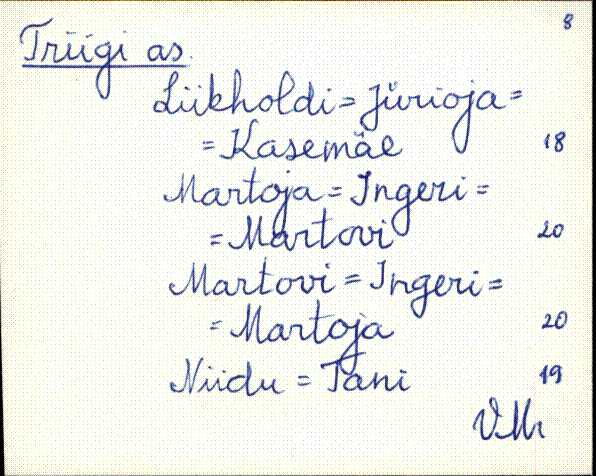 8
Triigi as.
Liikholdi = Jürioja =
= Kasemäe 18
Martoja = Ingeri =
= Martovi 20
Martovi = Ingeri =
= Martoja 20
Niidu = Tani 19
VMr